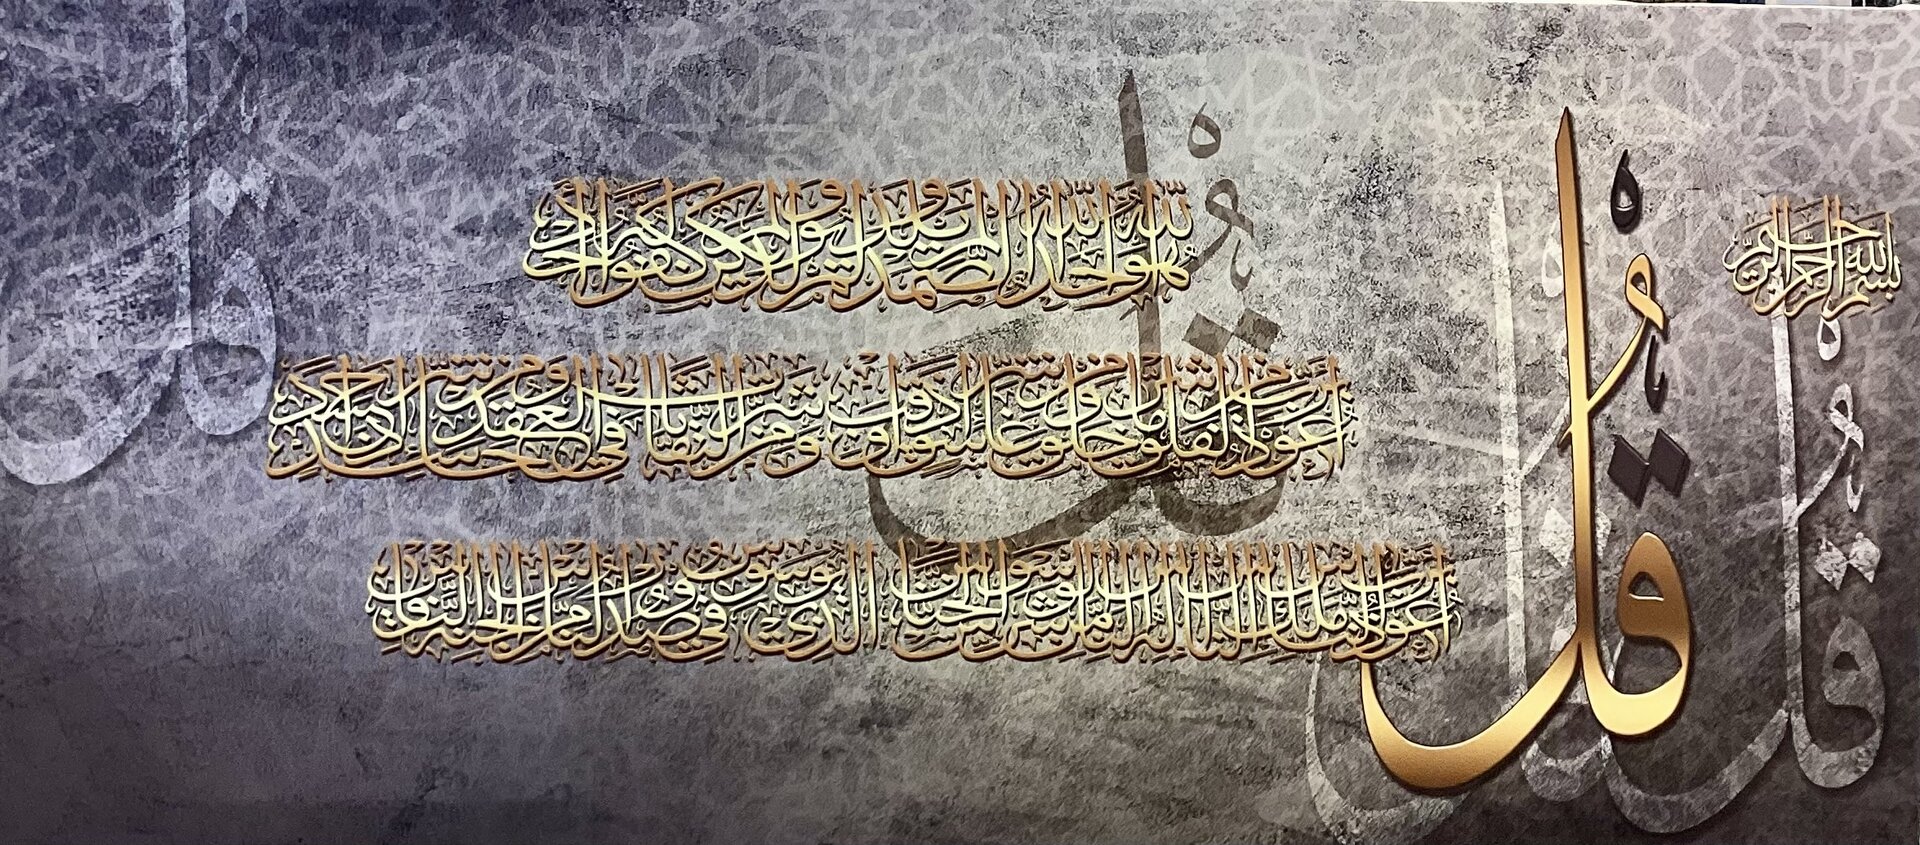 بسم الله الرحمن الرحيم
قل
هو الله أحد الله الصمد لم يلد ولم يولد ولم يكن له كفوا أحد
أعوذ برب الفلق من شر ما خلق ومن شر غاسق إذا وقب ومن شر النفاثات في العقد ومن شر حاسد إذا حسد
أعوذ برب الناس ملك الناس إله الناس من شر الوسواس الخناس الذي يوسوس في صدور الناس من الجنة والناس